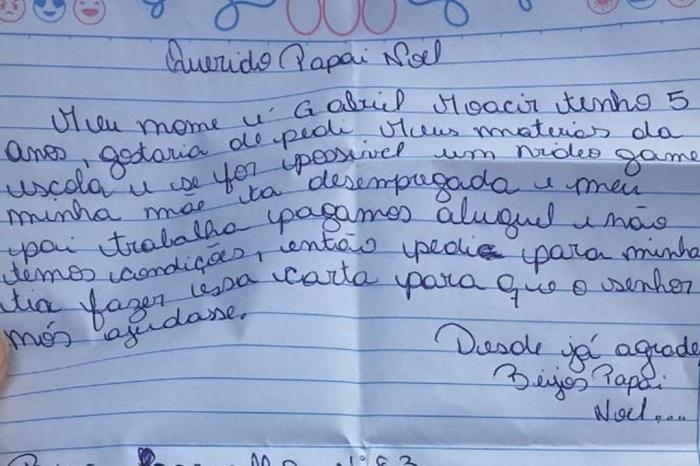 Querido Papai Noel
Meu nome é Gabriel Moacir tenho 5
anos, gostaria de pedi Meus materias da
escola e se for possivel um video game
minha mãe ta desempregada e meu
pai trabalha pagamos aluguel e não
temos condições, então pedi para minha
tia fazer essa carta para que o senhor
nós ajudasse.
Desde já agrade
Beijos Papai
Noel....